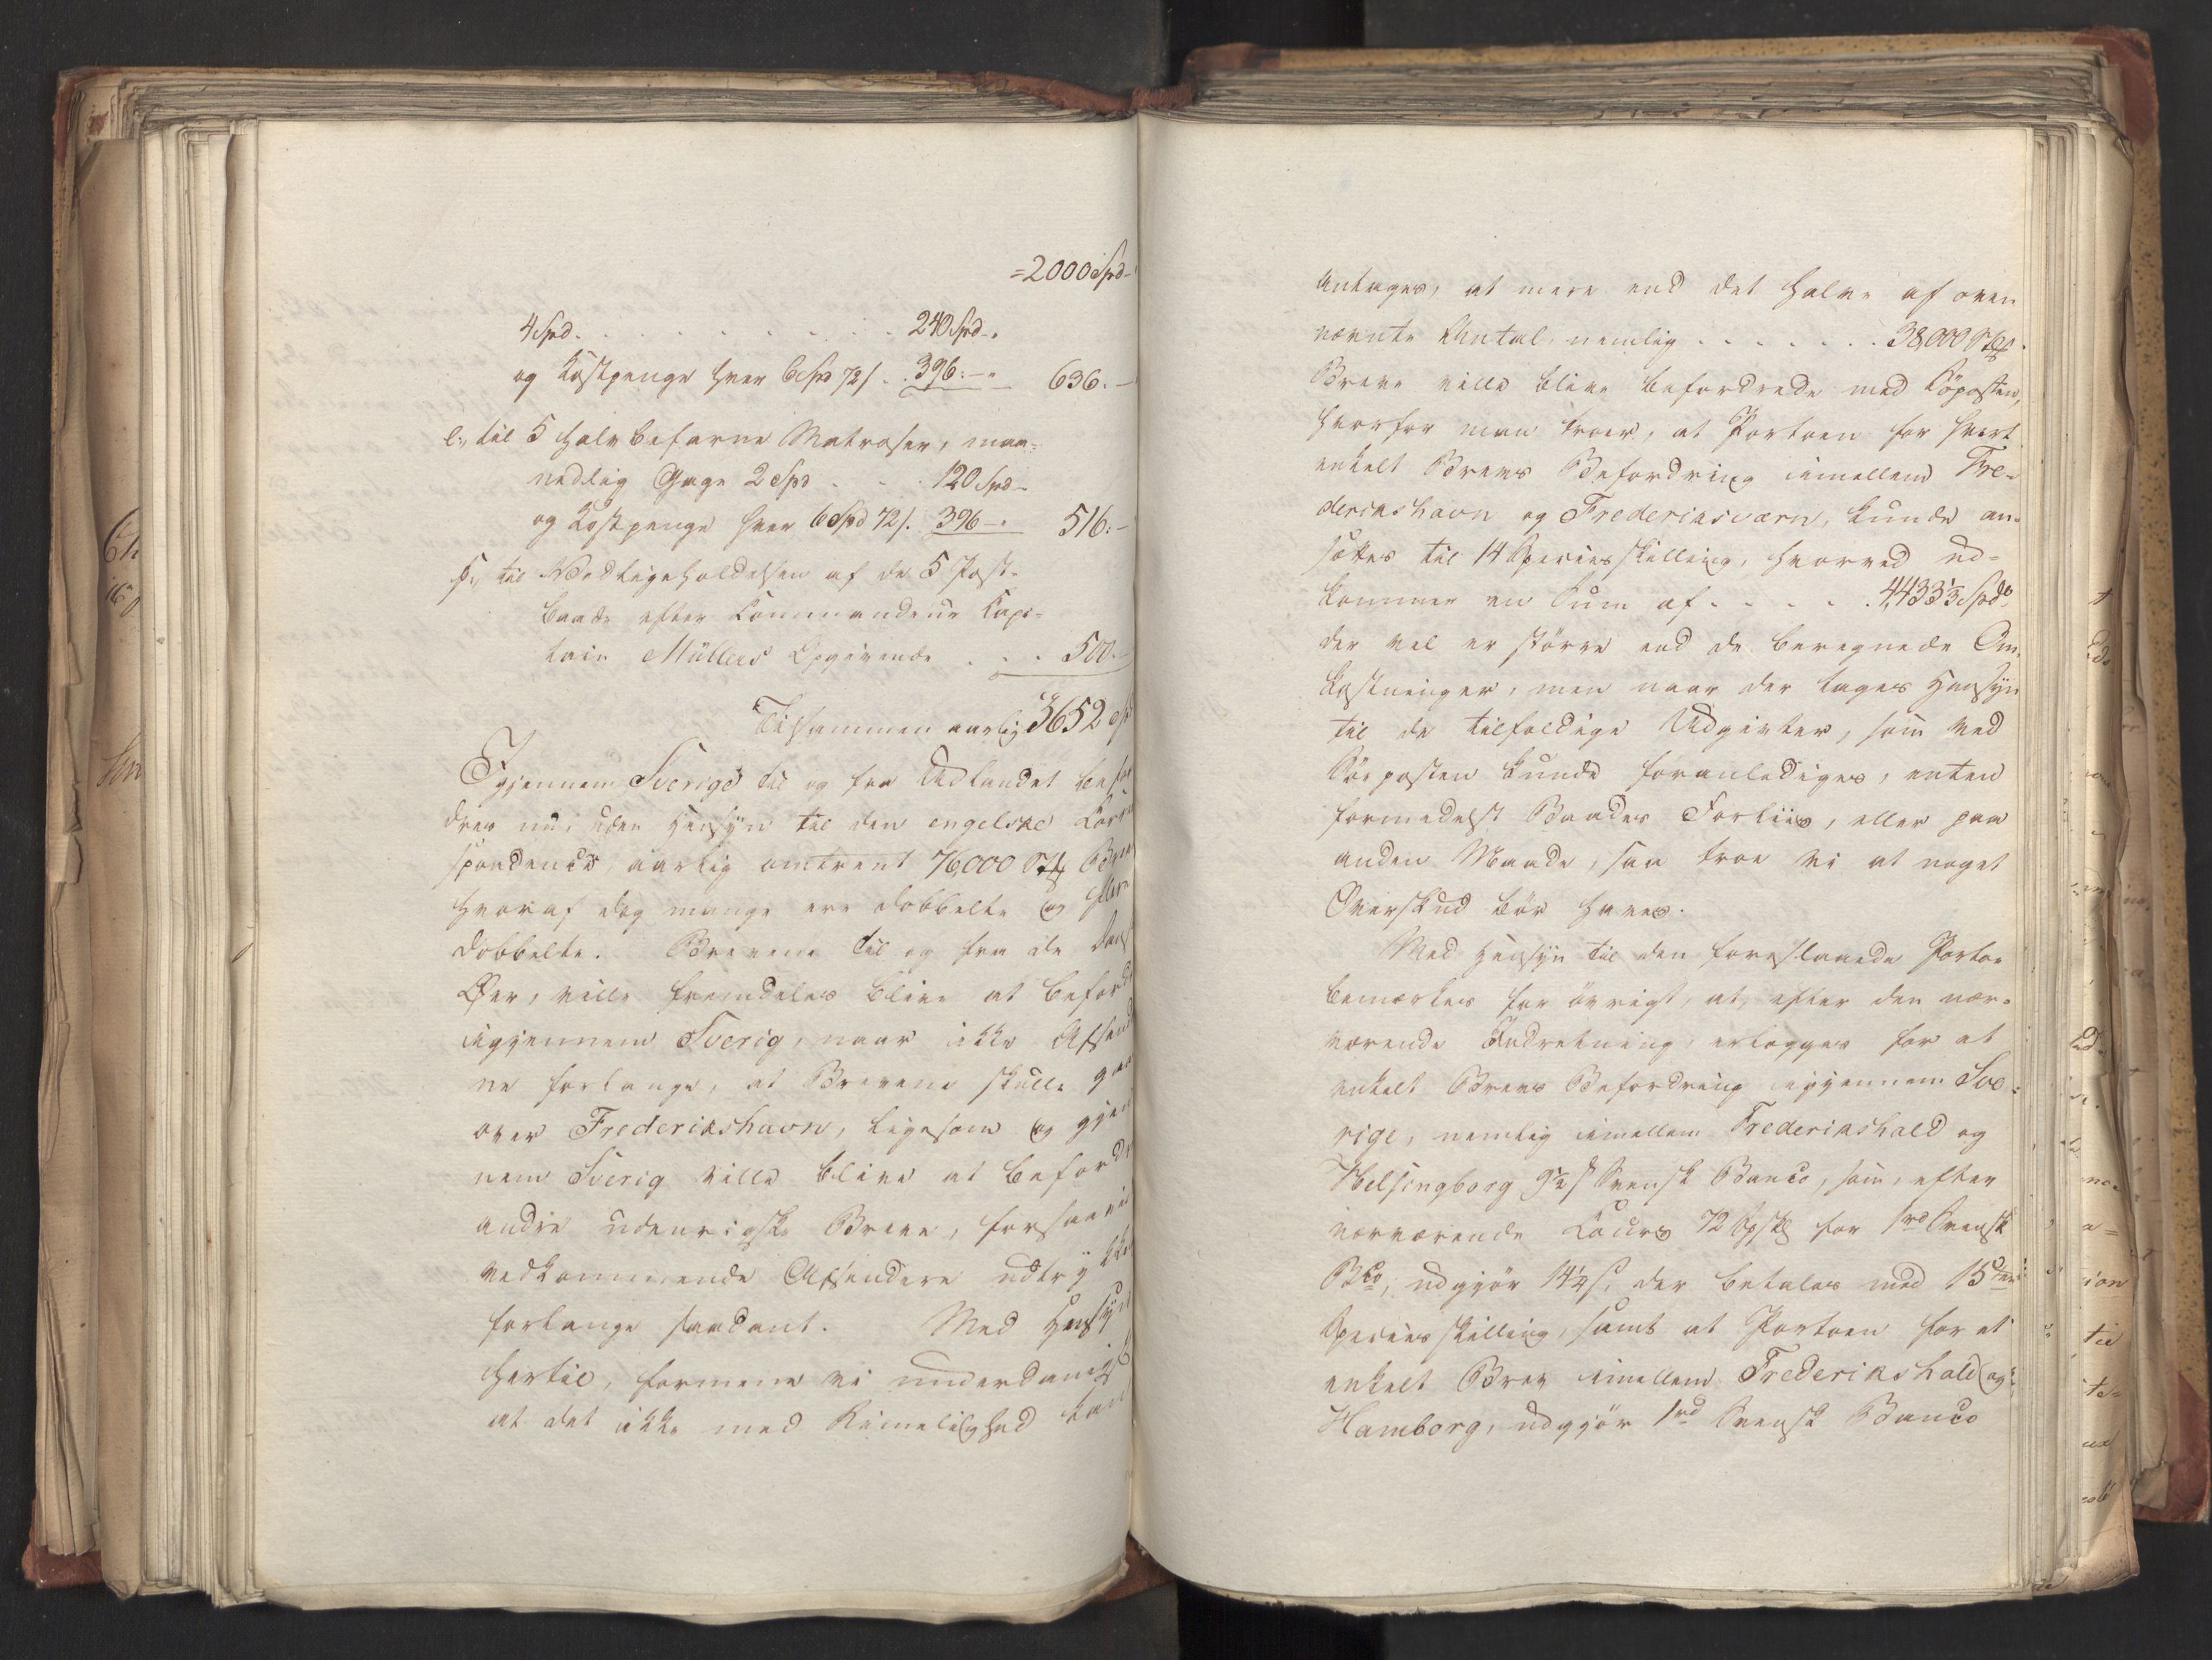 =2000 Spd-
4 Spd. . . . . . . . . . . 240 Spd-.
og Kostpenge hver 6 Spd 72/. . 396:-. 636.-
e., til 5 halvbefarne Matroser, maa-
nedlig Gage 2 Spd - - . 120 Spd-
og Kostpenge hver 6 Spd 72/. 396-. 516:-
f., til Vedligeholdelsen af de 5 Post-
baade efter Commandeur Cap-
tain Müllers Opgivende . . . 500.-
Tilsammen aarlig 3652 Sp
Igjennem Sverige til og fra Udlandet befor
dres nu, uden Hensyn til den engelske Corre
spondence, aarlig omtrent 76,000 Stk Breve
hvoraf dog mange ere dobbelte og flere
dobbelte. Brevene til og fra de Dansk
Øer, ville fremdeles blive at befordr
igjennem Sverig, naar ikke Afsend
ne forlange, at Brevene skulle gaa
over Frederikshavn, ligesom og gjen
nem Sverig ville blive at befordr
andre udenrigske Breve, forsaavid
vedkommende Afsendere udtrykke
forlange saadant. Med Hensyn
hertil, formene vi underdanigst
at det ikke med Rimelighed kan
antages, at mere end det halve af oven
nævnte Antal, nemlig . . . . . . . 38,000 Stk.
Breve ville blive befordrede med Søposten,
hvorfor man troer, at Portoen for hvert
enkelt Brevs Befordring imellem Fre-
derikshavn og Frederiksværn, kunde an-
sættes til 14 Speciesskilling, hvorved ud-
kommer en Sum af . . . . . 4,433⅓ Spd.
der vel er større end de beregnede Om-
kostninger, men naar der tages Hensyn
til de tilfældige Udgivter, som ved
Søeposten kunde foranlediges, enten
formedelst Baades Forliis, eller paa
anden Maade, saa troe vi at noget
Overskud bør haves.
Med Hensyn til den foreslaaede Porto
bemærkes for øvrigt, at, efter den nær-
værende Indretning, erlægges for et
enkelt Brevs Befordring igjennem Sve-
rige, nemlig imellem Frederikshald og
Helsingborg 9½ s Svensk Banco, som, efter
nærværende Cours 72 Spsk for 1 rd Svensk
Bco, udgjør 14¼ s, der betales med 15 ten
Speciesskilling, samt at Portoen for et
enkelt Brev imellem Frederikshald og
Hamborg, udgjør 1 rd Svensk Banco